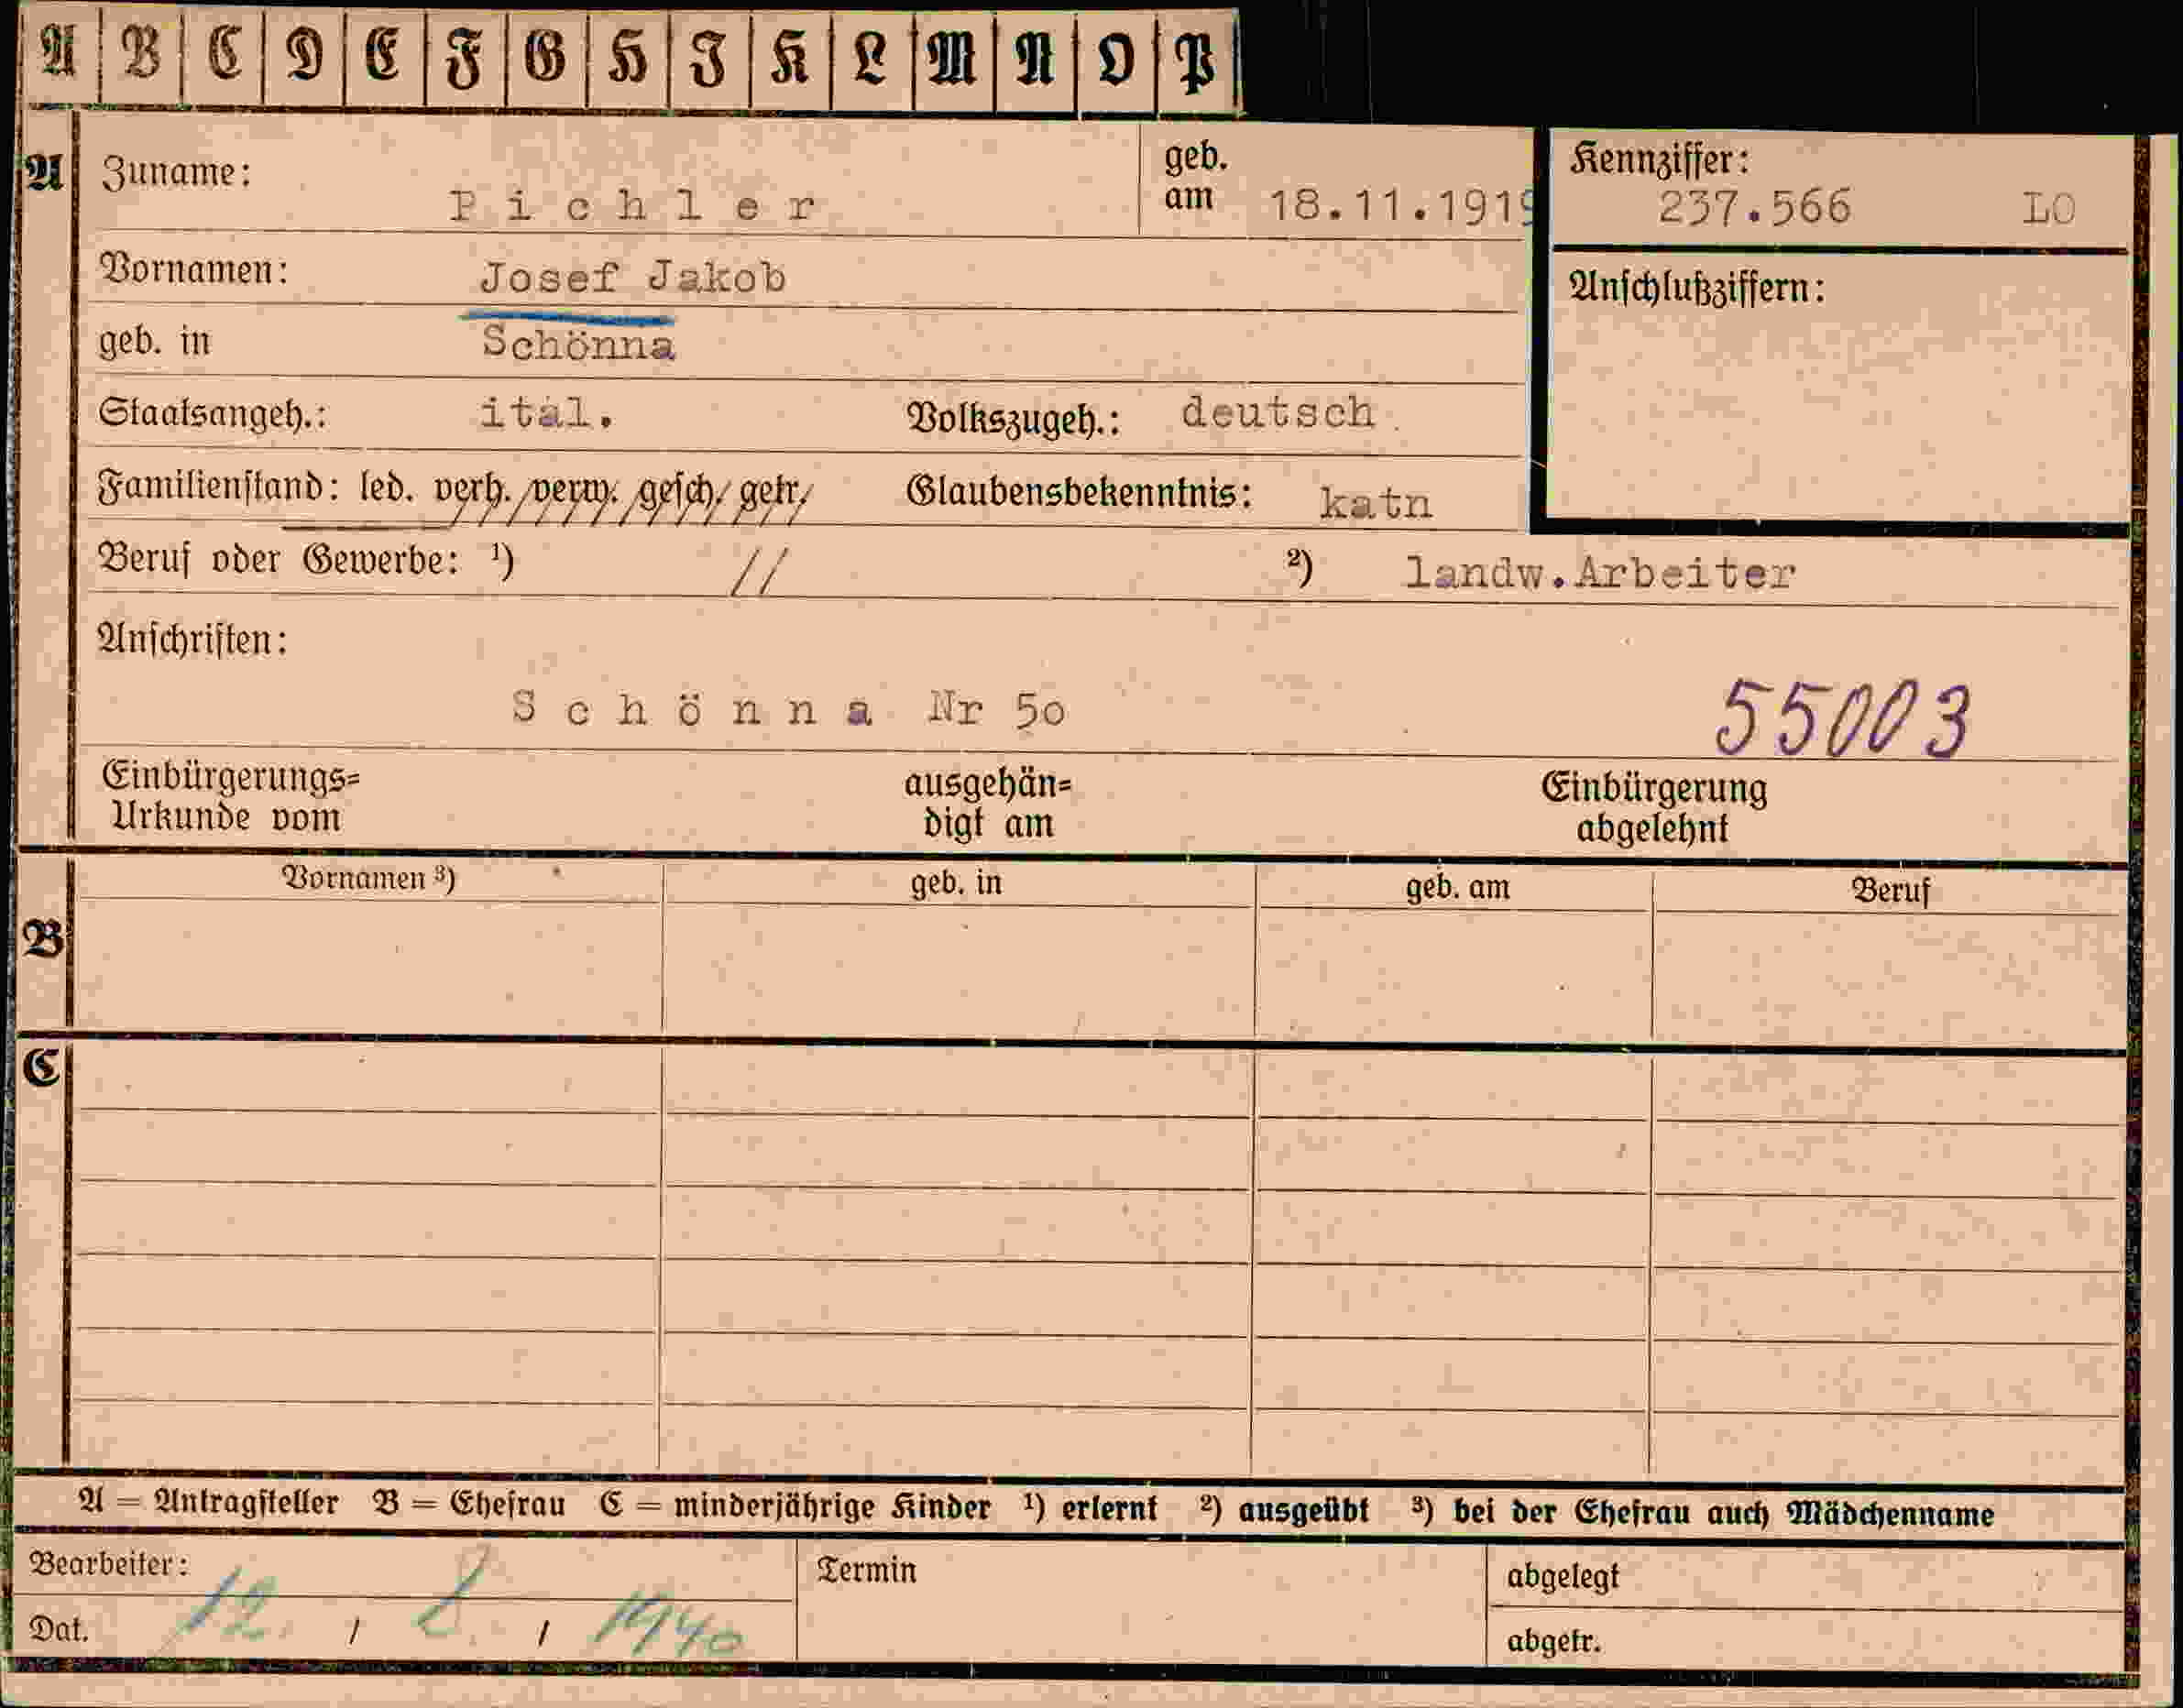 A B C D E F G H I K L M N O P
A Zuname: Pichler geb. am 18.11.1919 Kennziffer: 237.566 LO
Vornamen: Josef Jakob Anschlußziffern:
geb. in Schönna
Staatsangeh.: ital. Volkszugeh.: deutsch.
Familienstand: led. verh. verw. gesch. getr. Glaubensbekenntnis: kath
Beruf oder Gewerbe: ¹) // ²) landw.Arbeiter
Anschriften:
Schönna Nr 50 55003
Einbürgerungs= ausgehän= Einbürgerung
Urkunde vom digt am abgelehnt
Vornamen ³) geb. in geb. am Beruf
B
C
A = Antragsteller B = Ehefrau C = minderjährige Kinder ¹) erlernt ²) ausgeübt ³) bei der Ehefrau auch Mädchenname
Bearbeiter: Termin abgelegt
Dat. 12. / 2. / 1940 abgetr.